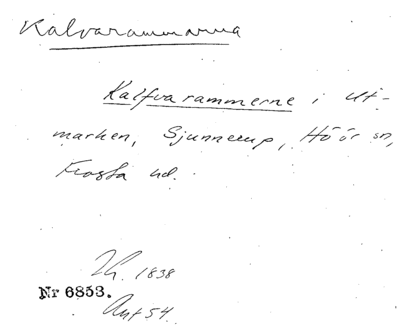 Kalvarammarna
Kalfvarammerne i Ut-
marken, Sjunnerup, Höör sn,
Frosta hd.
1838
Nr 6853.
Ant 54